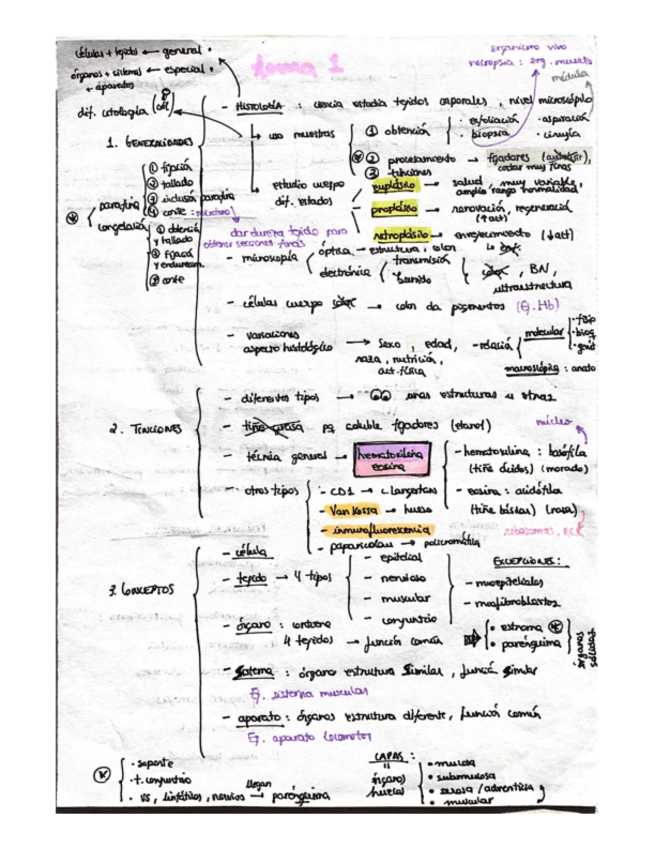 células + tejidos ← general •
órganos + sistemas ← especial •
+ aparatos
tema 1
organismo vivo
necropsia : org. muerto
médula
dif. citología
- HISTOLOGÍA : ciencia estudia tejidos corporales, nivel microscópio
1. GENERALIDADES
↳ uso muestras
① obtención
• esfoliación
• biopsia
• aspiración
• cirugía
② procesamiento → fijadores
cortar muy finas
③ tinciones
↳ estudio cuerpo
dif. estados
euplásico → salud, muy variable,
amplio rango normalidad
proplásico → renovación, regeneración
(↑act)
retroplásico → envejecimiento (↓act)
parafina
① fijación
② tallado
③ inclusión parafina
④ corte : micrótomo
congelación
① obtención
y tallado
② fijación
y endurecim.
③ corte
dar dureza tejido para
obtener secciones finas
- microscopía
óptica → estructura, color
electrónica
transmisión
barrido
color, BN,
ultraestructura
- células cuerpo color → color da pigmentos (Ej. Hb)
- variaciones
aspecto histológico → sexo, edad,
raza, nutrición,
act. física
- relación
molecular
• fisio
• bioq
• genét
macroscópica : anato
2. TINCIONES
- diferentes tipos → unas estructuras u otras
- tiñe grasa pq soluble fijadores (etanol)
- técnica general → hematoxilina
eosina
núcleo
- hematoxilina : basófila
(tiñe ácidos) (morado)
- eosina : acidófila
(tiñe básicas) (rosa)
ribosomas,
- otros tipos
- CD1 → c. langerhans
- Van Kossa → hueso
- inmunofluorescencia
- papanicolau → policromática
3. CONCEPTOS
- célula
- tejido → 4 tipos
- epitelial
- nervioso
- muscular
- conjuntivo
EXCEPCIONES:
- mioepiteliales
- miofibroblastos
- órgano : contiene
4 tejidos → función común
• estroma
• parénquima
órganos
sólidos
- sistema : órgano estructura similar, función similar
Ej. sistema muscular
- aparato : órganos estructura diferente, función común
Ej. aparato locomotor
• soporte
• t. conjuntivo
• VS, linfáticos, nervios → parénquima
llegan
CAPAS:
órganos
huecos
• mucosa
• submucosa
• serosa / adventicia
• muscular